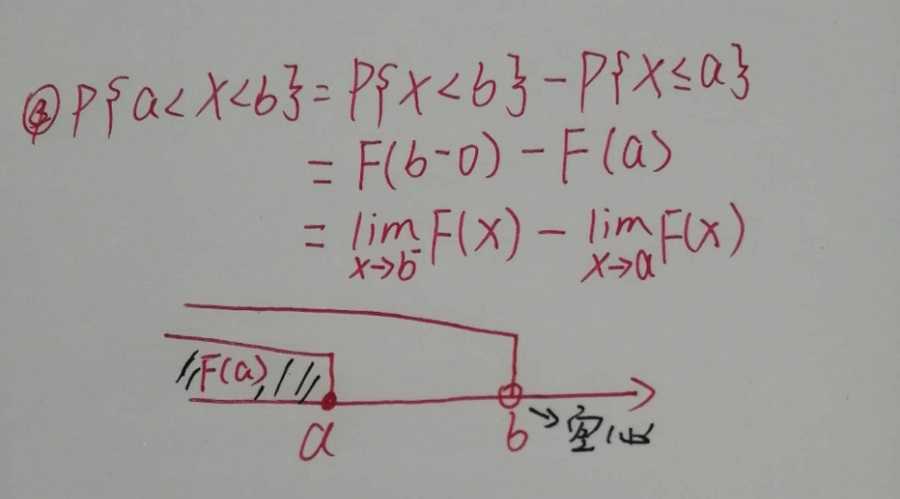 ③ P{a<X<b} = P{X<b} - P{X≤a}
= F(b-0) - F(a)
= lim F(x) - lim F(x)
x→b⁻ x→a
F(a)
a b → 空心